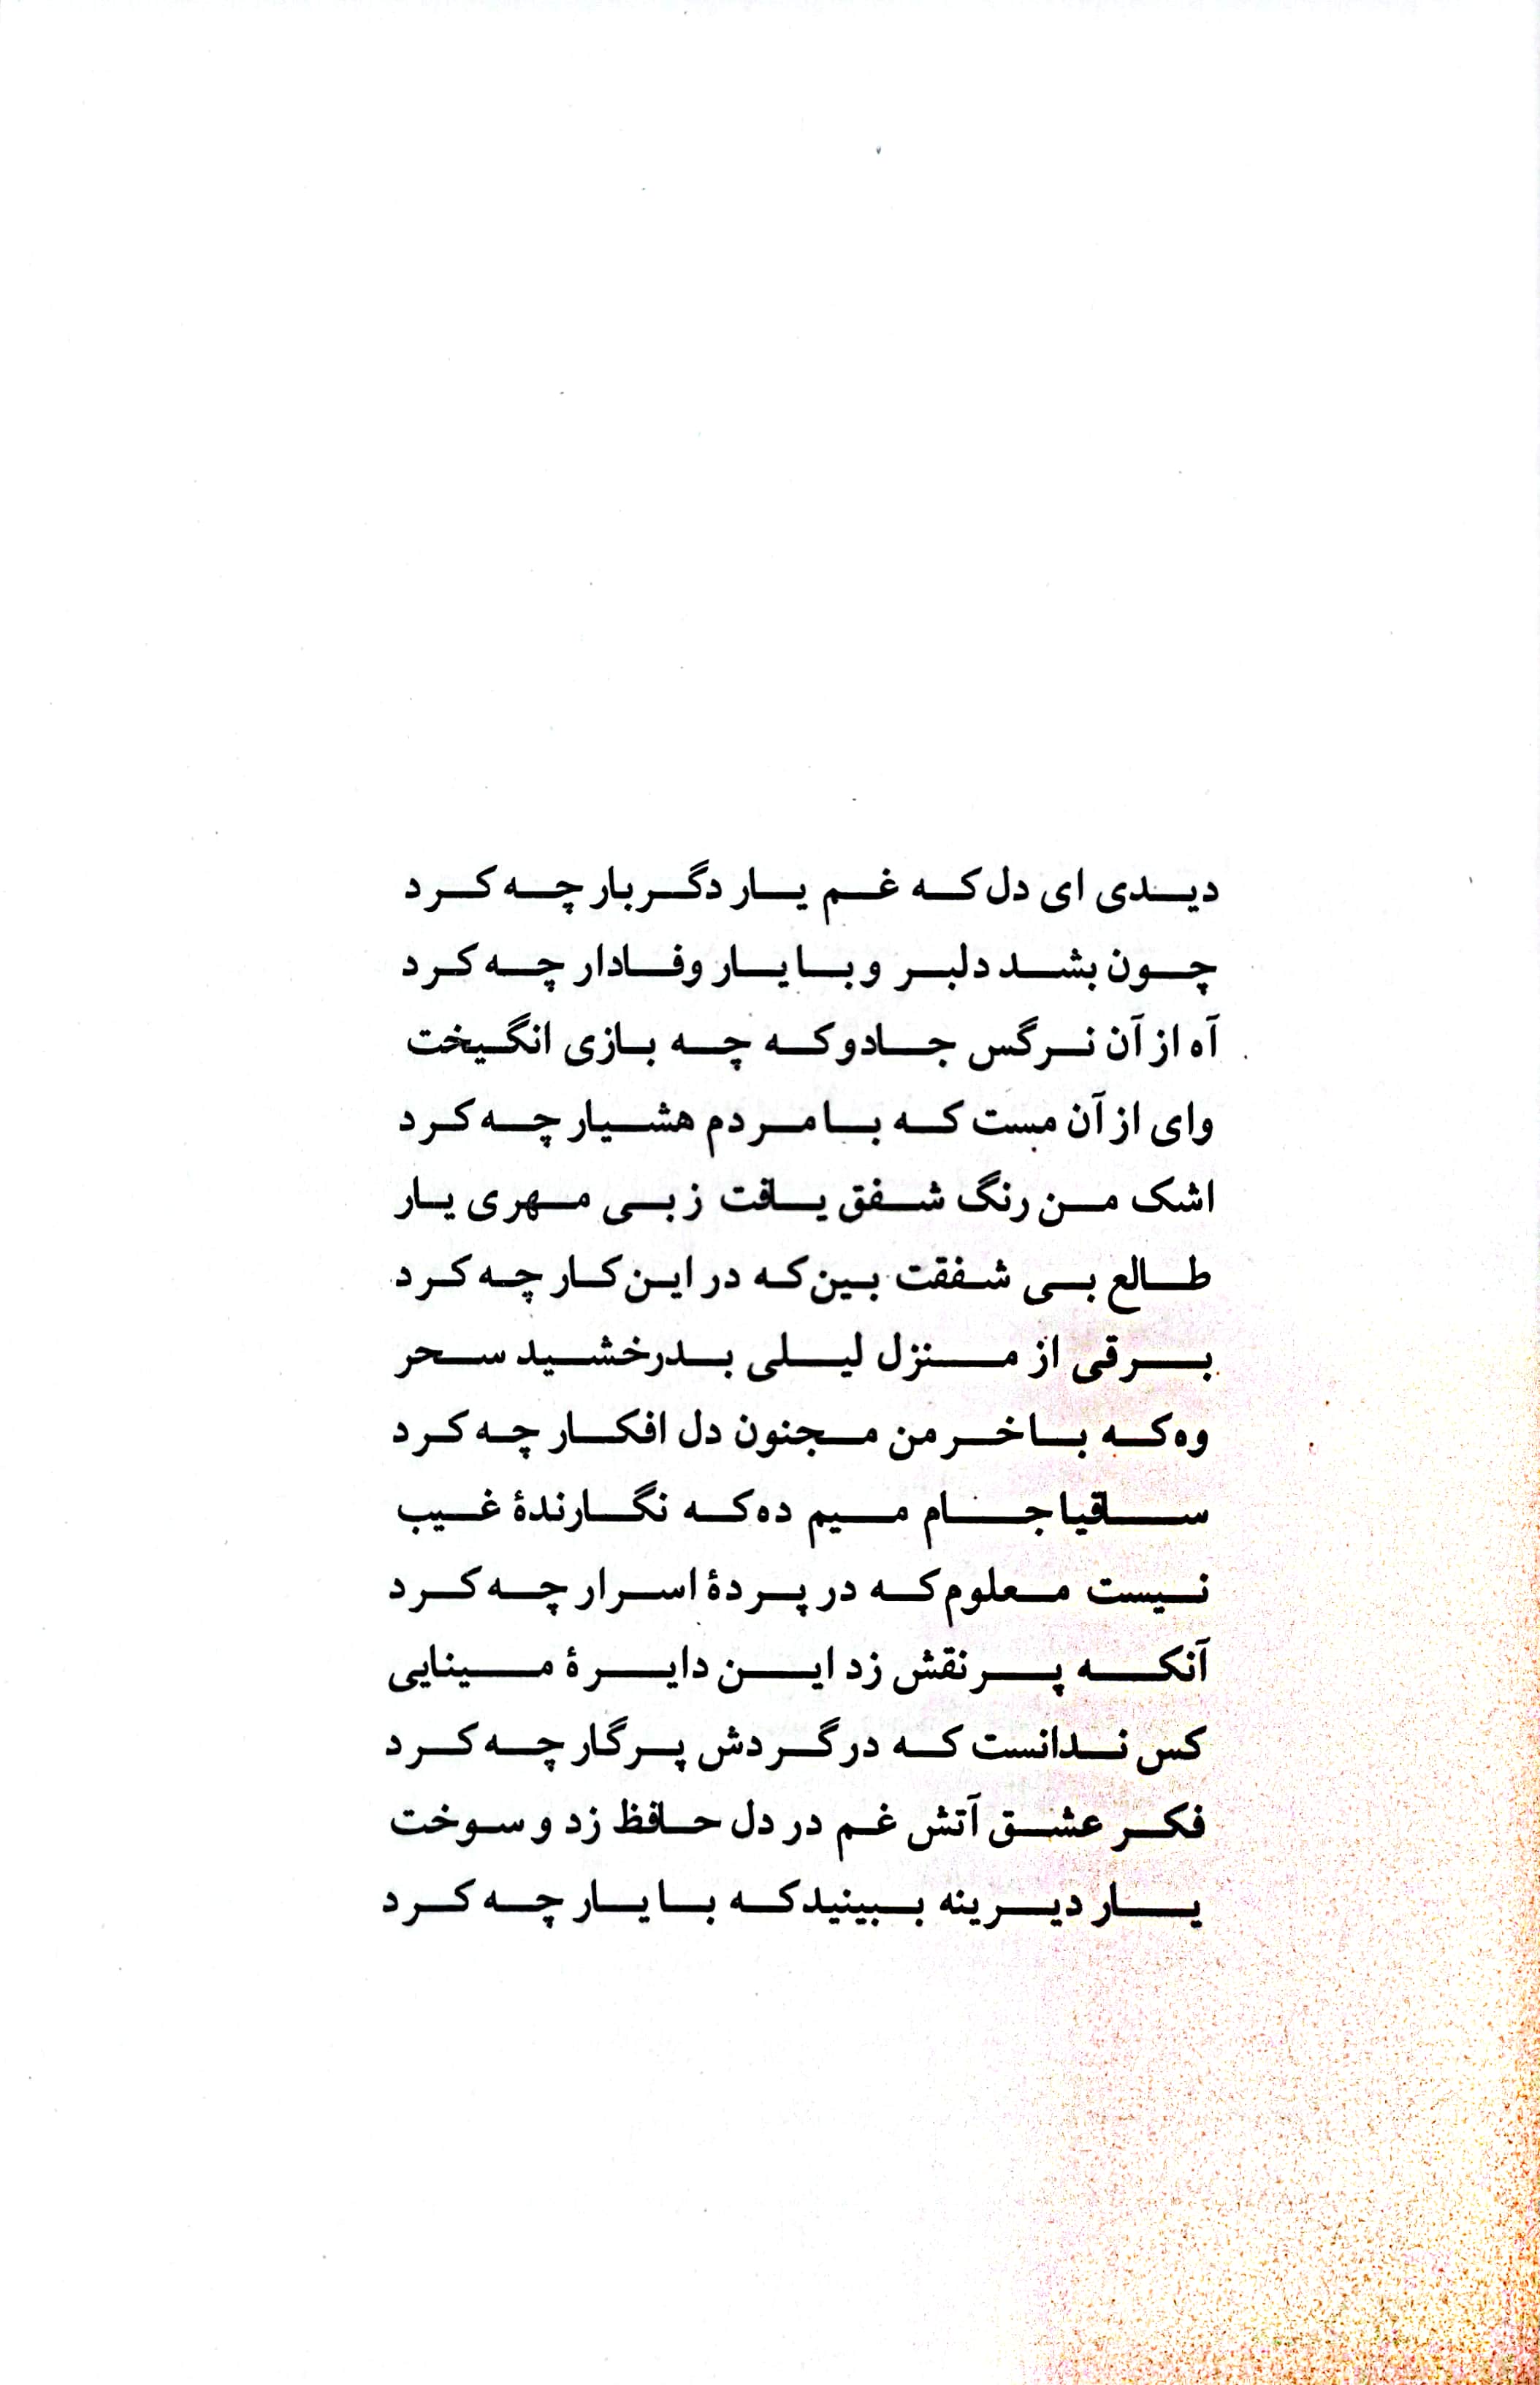 دیدی ای دل که غم یار دگر بار چه کرد
چون بشد دلبر و با یار وفادار چه کرد
آه از آن نرگس جادو که چه بازی انگیخت
وای از آن مست که با مردم هشیار چه کرد
اشک من رنگ شفق یافت ز بی مهری یار
طالع بی شفقت بین که در این کار چه کرد
برقی از منزل لیلی بدرخشید سحر
وه که با خرمن مجنون دل افکار چه کرد
ساقیا جام میم ده که نگارندهٔ غیب
نیست معلوم که در پردهٔ اسرار چه کرد
آنکه پر نقش زد این دایرهٔ مینایی
کس ندانست که در گردش پرگار چه کرد
فکر عشق آتش غم در دل حافظ زد و سوخت
یار دیرینه ببینید که با یار چه کرد